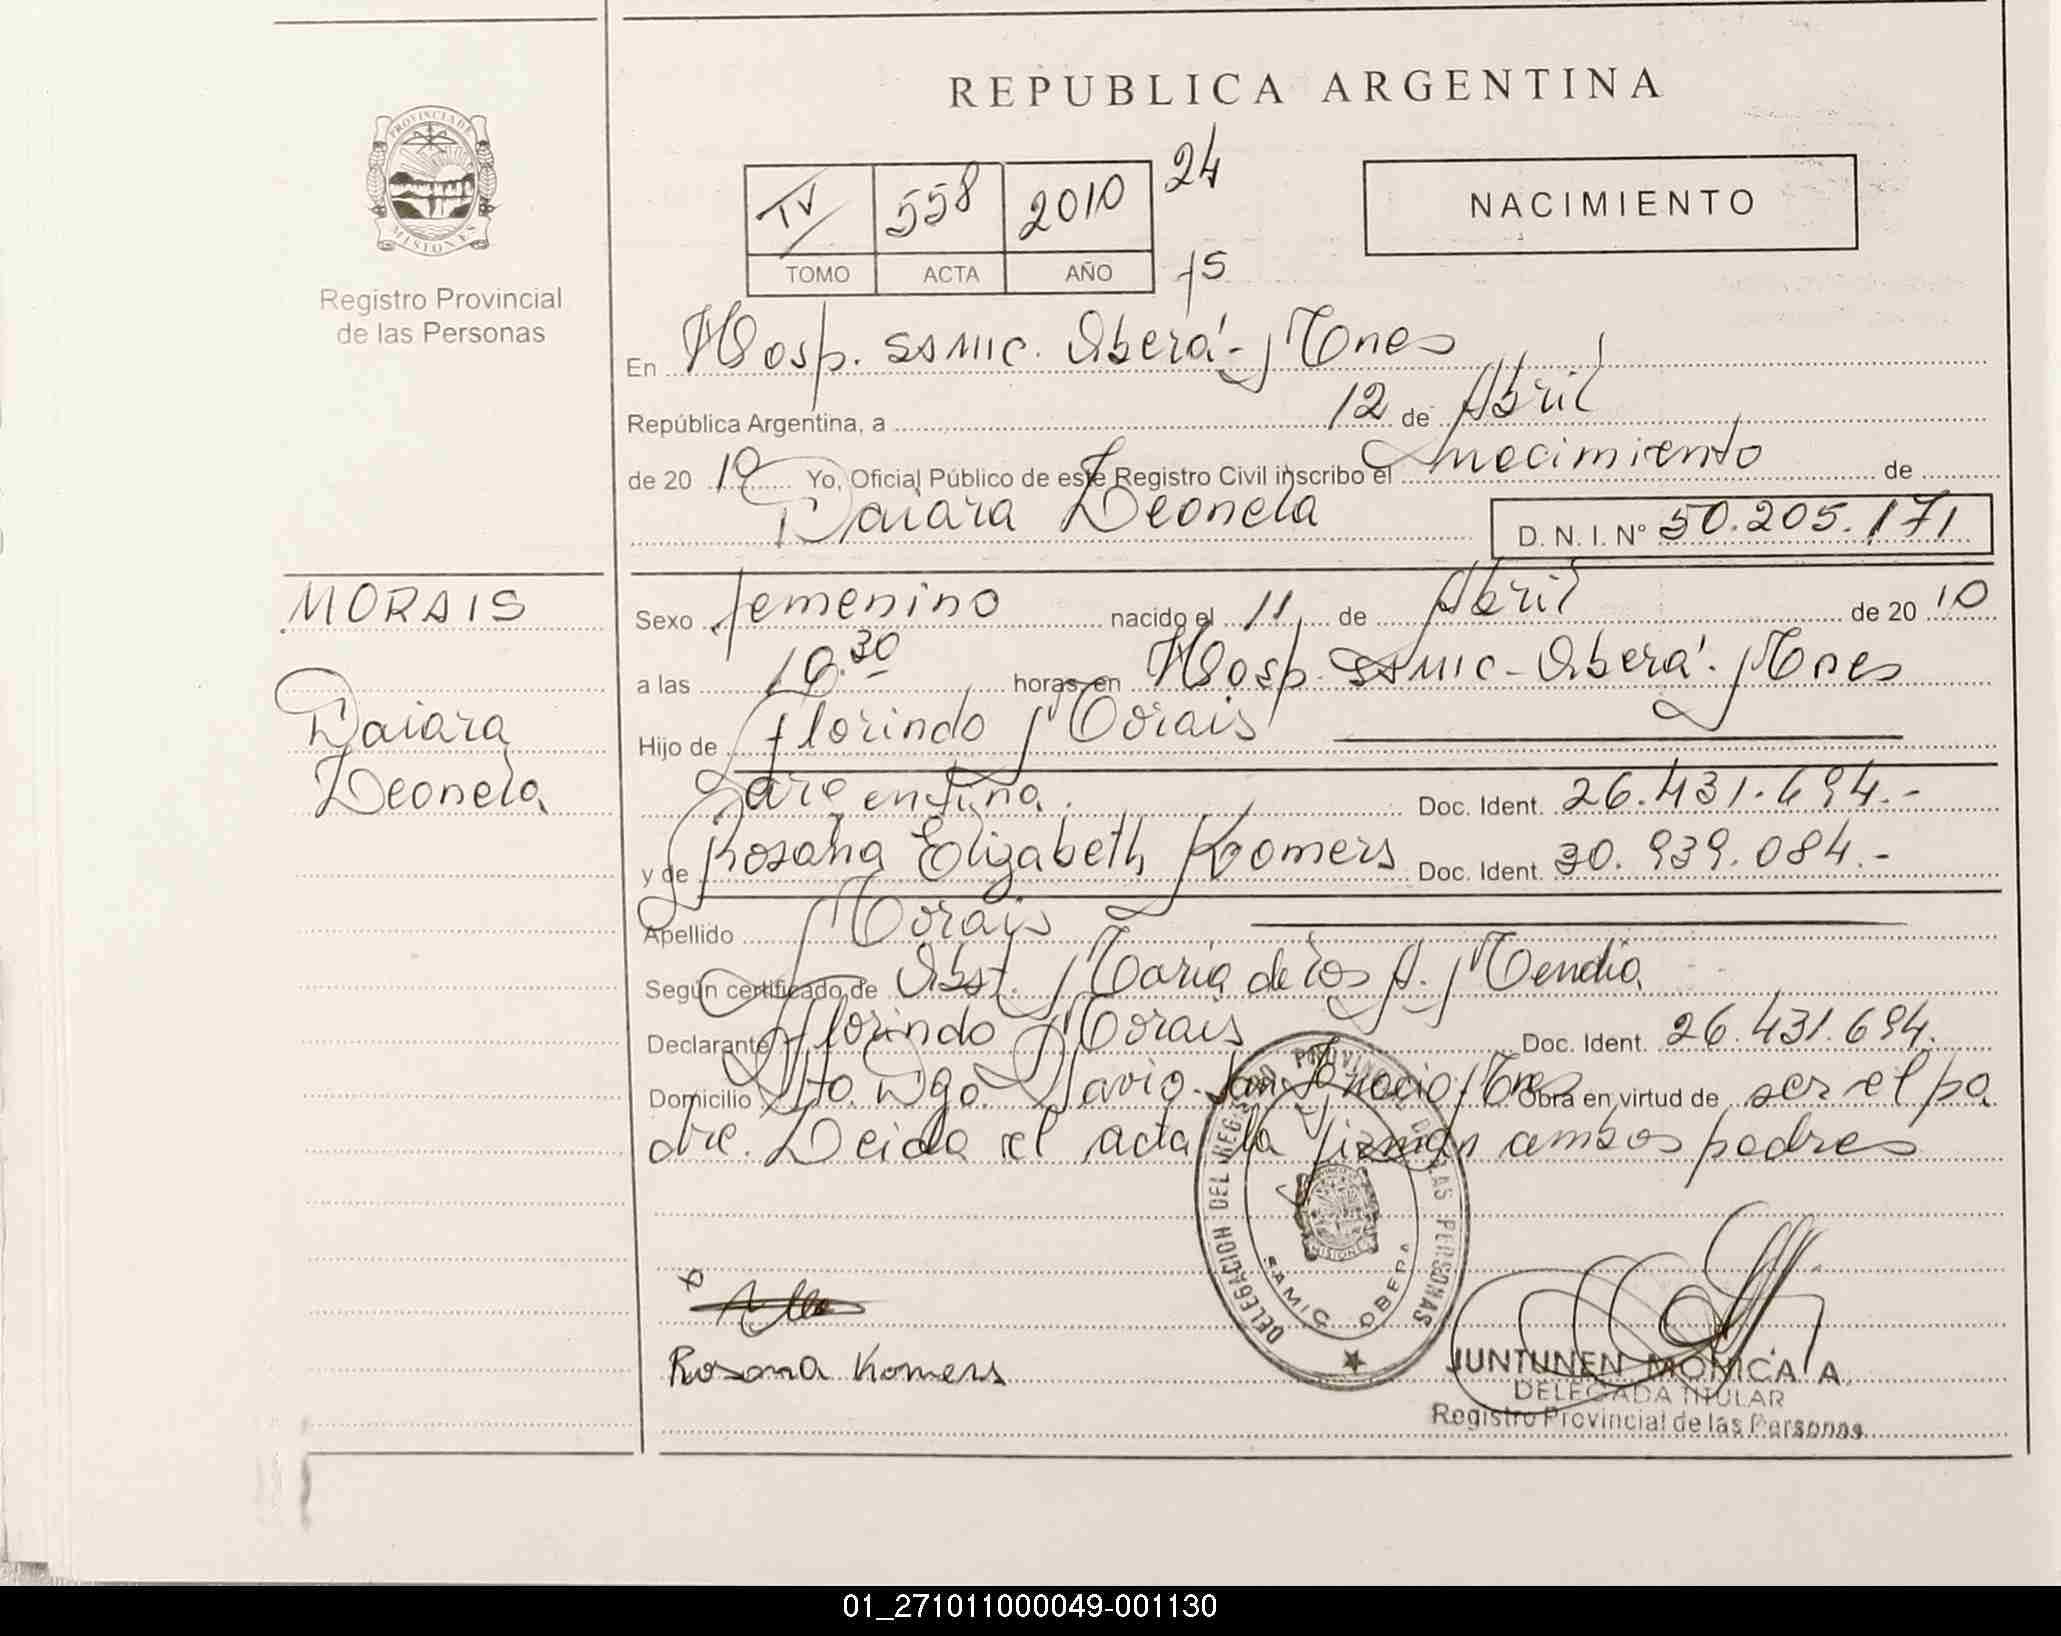 REPUBLICA ARGENTINA
PROVINCIA DE
MISIONES
Registro Provincial
de las Personas
IV 558 2010 24
TOMO ACTA AÑO 75
NACIMIENTO
En Hosp. SAMIC. Oberá - Mnes
República Argentina, a 12 de Abril
de 20 10 Yo, Oficial Público de este Registro Civil inscribo el nacimiento de
Daiara Leonela D. N. I. N° 50.205.171
MORAIS
Daiara
Leonela
Sexo femenino nacido el 11 de Abril de 20 10
a las 19.30 horas en Hosp. SAMIC - Oberá. Mnes
Hijo de Florindo Morais
argentina. Doc. Ident. 26.431.694.-
y de Rosana Elizabeth Komers Doc. Ident. 30.939.084.-
Apellido Morais
Según certificado de Obst. Maria de los A. Mendia
Declarante Florindo Morais Doc. Ident. 26.431.694.
Domicilio Dgo. Savio. San Ignacio. Mnes Obra en virtud de ser el pa
dre. Leida el acta la firman ambos padres
DELEGACION DEL REGISTRO PROVINCIAL DE LAS PERSONAS
MISIONES
SAMIC OBERA
Rosana Komers
JUNTUNEN MONICA A.
DELEGADA TITULAR
Registro Provincial de las Personas
01_271011000049-001130